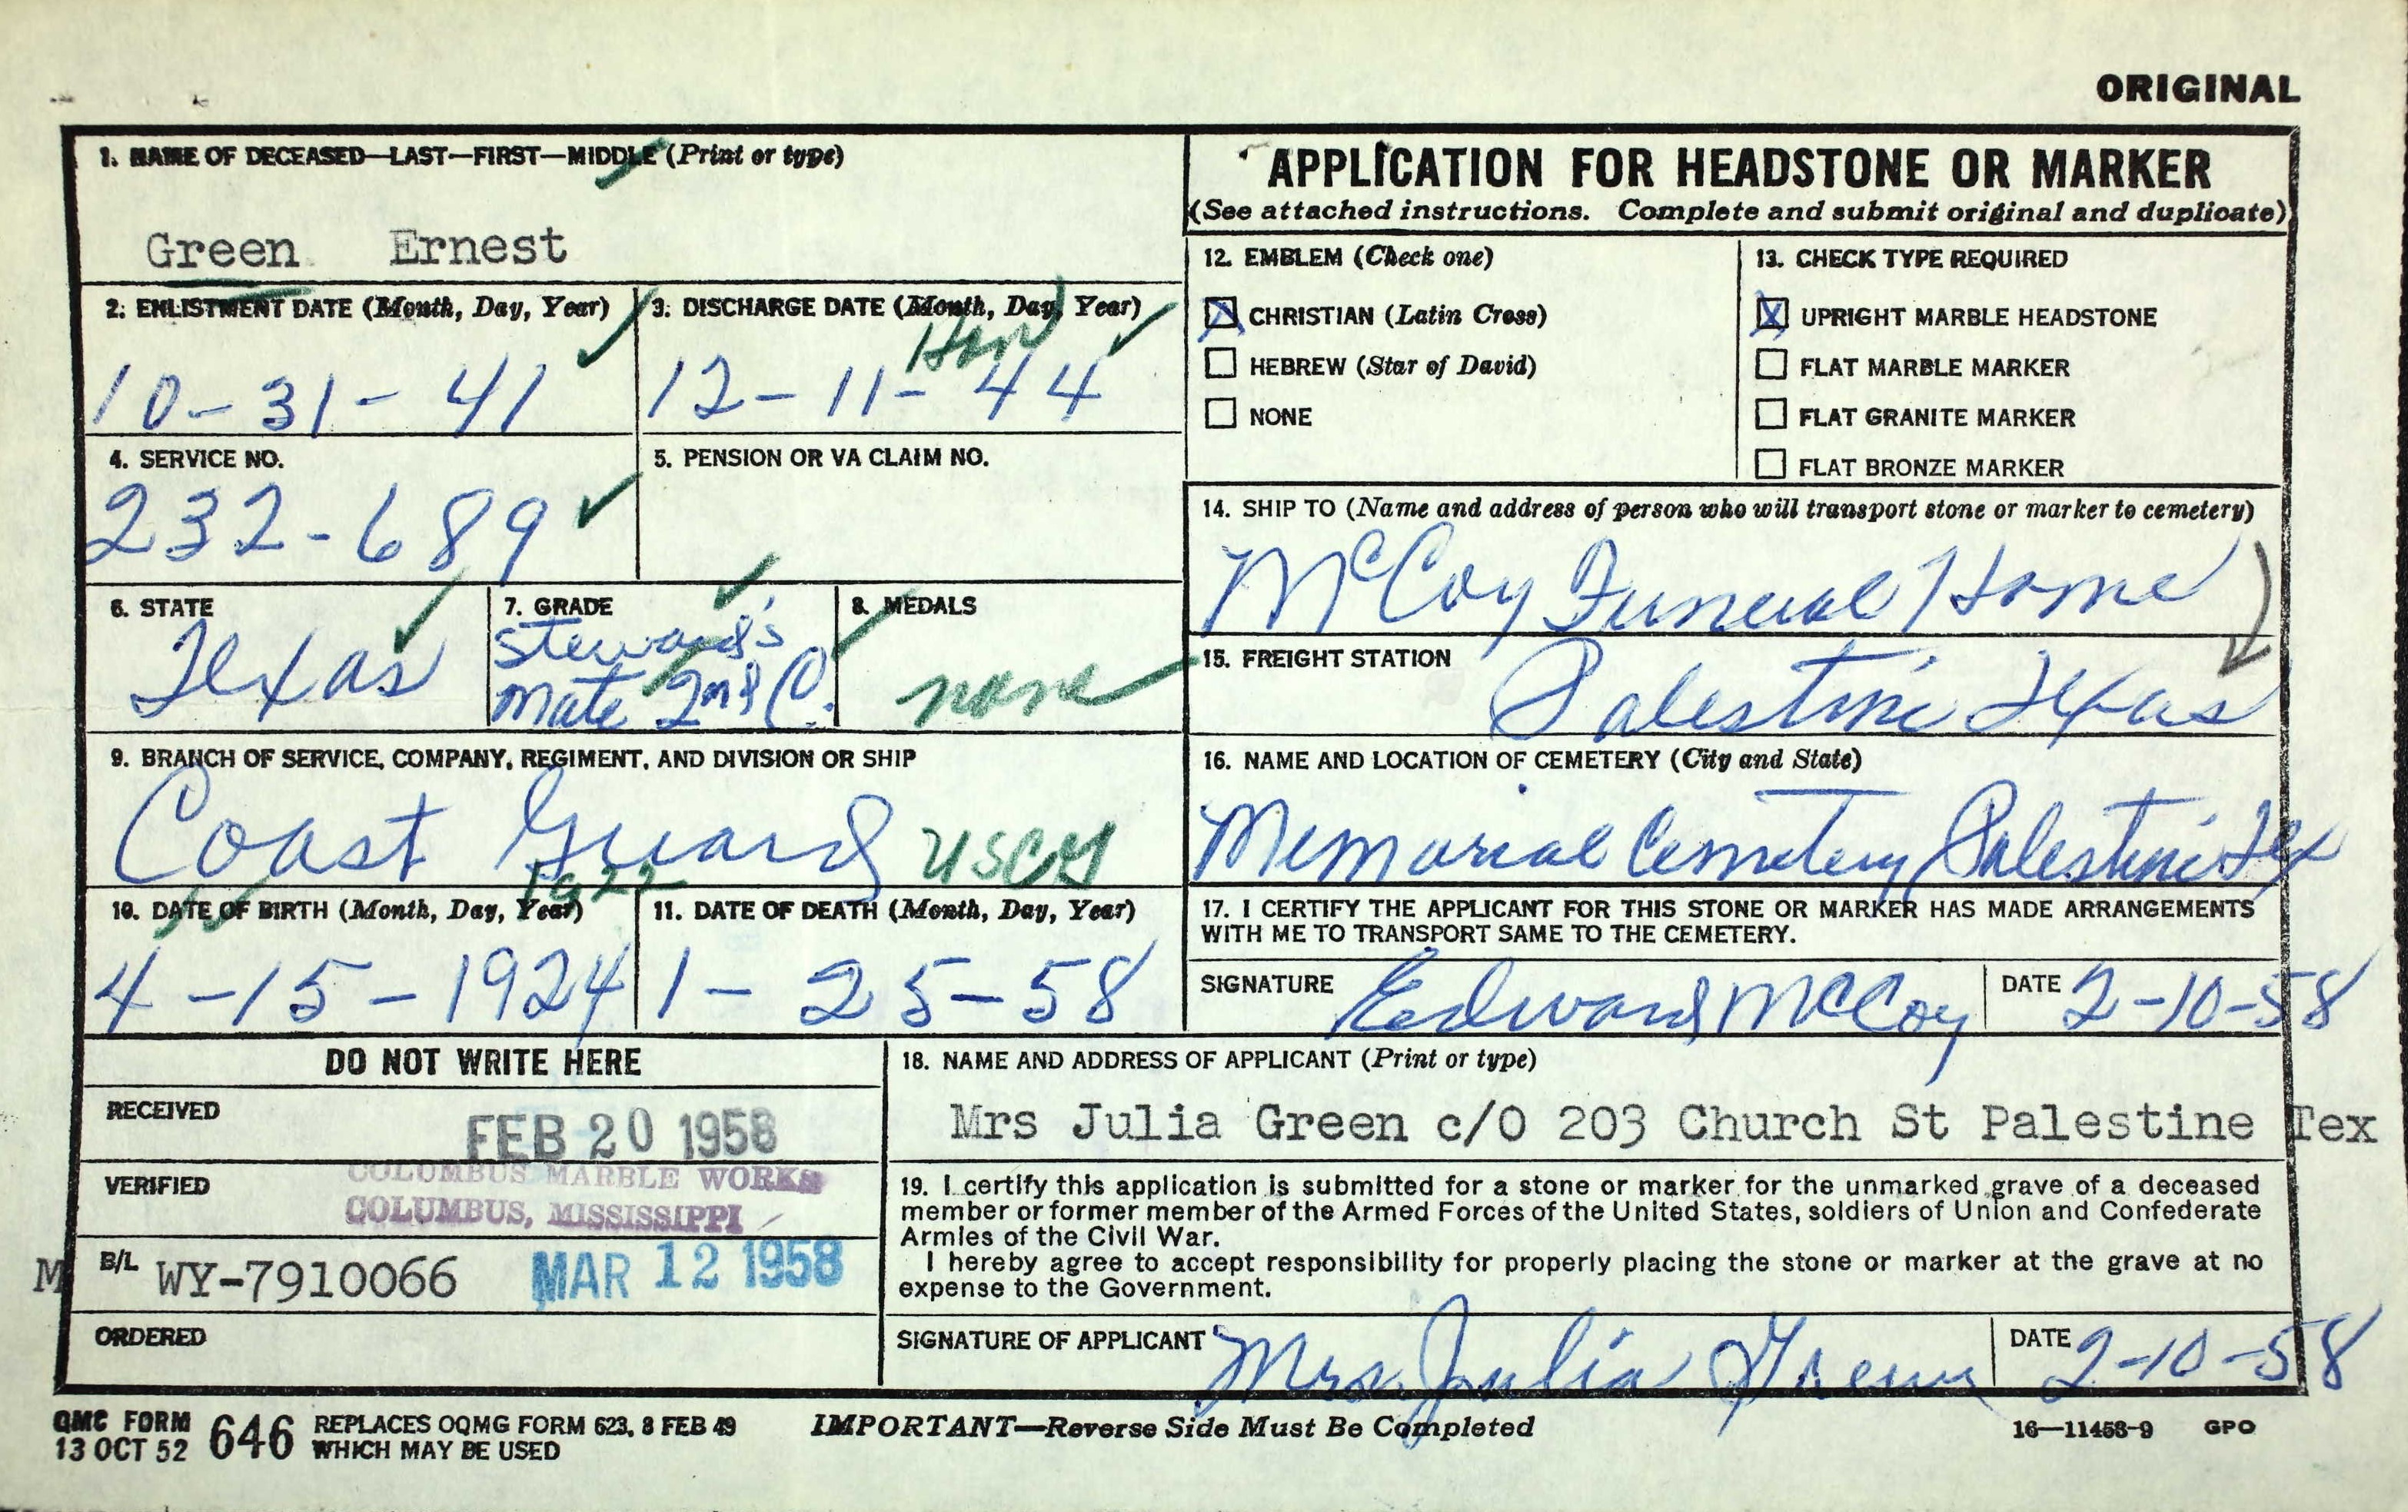 ORIGINAL
1. NAME OF DECEASED—LAST—FIRST—MIDDLE (Print or type)
Green Ernest
APPLICATION FOR HEADSTONE OR MARKER
(See attached instructions. Complete and submit original and duplicate)
2. ENLISTMENT DATE (Month, Day, Year)
10-31-41
3. DISCHARGE DATE (Month, Day, Year)
Hon
12-11-44
4. SERVICE NO.
232-689
5. PENSION OR VA CLAIM NO.
6. STATE
Texas
7. GRADE
Steward's
Mate 2nd C.
8. MEDALS
none
9. BRANCH OF SERVICE, COMPANY, REGIMENT, AND DIVISION OR SHIP
Coast Guard USCG
10. DATE OF BIRTH (Month, Day, Year)
1922
4-15-1924
11. DATE OF DEATH (Month, Day, Year)
1-25-58
12. EMBLEM (Check one)
CHRISTIAN (Latin Cross)
HEBREW (Star of David)
NONE
13. CHECK TYPE REQUIRED
UPRIGHT MARBLE HEADSTONE
FLAT MARBLE MARKER
FLAT GRANITE MARKER
FLAT BRONZE MARKER
14. SHIP TO (Name and address of person who will transport stone or marker to cemetery)
McCoy Funeral Home
15. FREIGHT STATION
Palestine Texas
16. NAME AND LOCATION OF CEMETERY (City and State)
Memorial Cemetery Palestine Tex
17. I CERTIFY THE APPLICANT FOR THIS STONE OR MARKER HAS MADE ARRANGEMENTS
WITH ME TO TRANSPORT SAME TO THE CEMETERY.
SIGNATURE Edward McCoy DATE 2-10-58
DO NOT WRITE HERE
RECEIVED FEB 20 1958
VERIFIED COLUMBUS MARBLE WORKS
COLUMBUS, MISSISSIPPI
M B/L WY-7910066 MAR 12 1958
ORDERED
18. NAME AND ADDRESS OF APPLICANT (Print or type)
Mrs Julia Green c/O 203 Church St Palestine Tex
19. I certify this application is submitted for a stone or marker for the unmarked grave of a deceased
member or former member of the Armed Forces of the United States, soldiers of Union and Confederate
Armies of the Civil War.
I hereby agree to accept responsibility for properly placing the stone or marker at the grave at no
expense to the Government.
SIGNATURE OF APPLICANT Mrs. Julia Green DATE 2-10-58
QMC FORM 646 REPLACES OQMG FORM 623, 8 FEB 49
13 OCT 52 WHICH MAY BE USED
IMPORTANT—Reverse Side Must Be Completed
16—11458-9 GPO